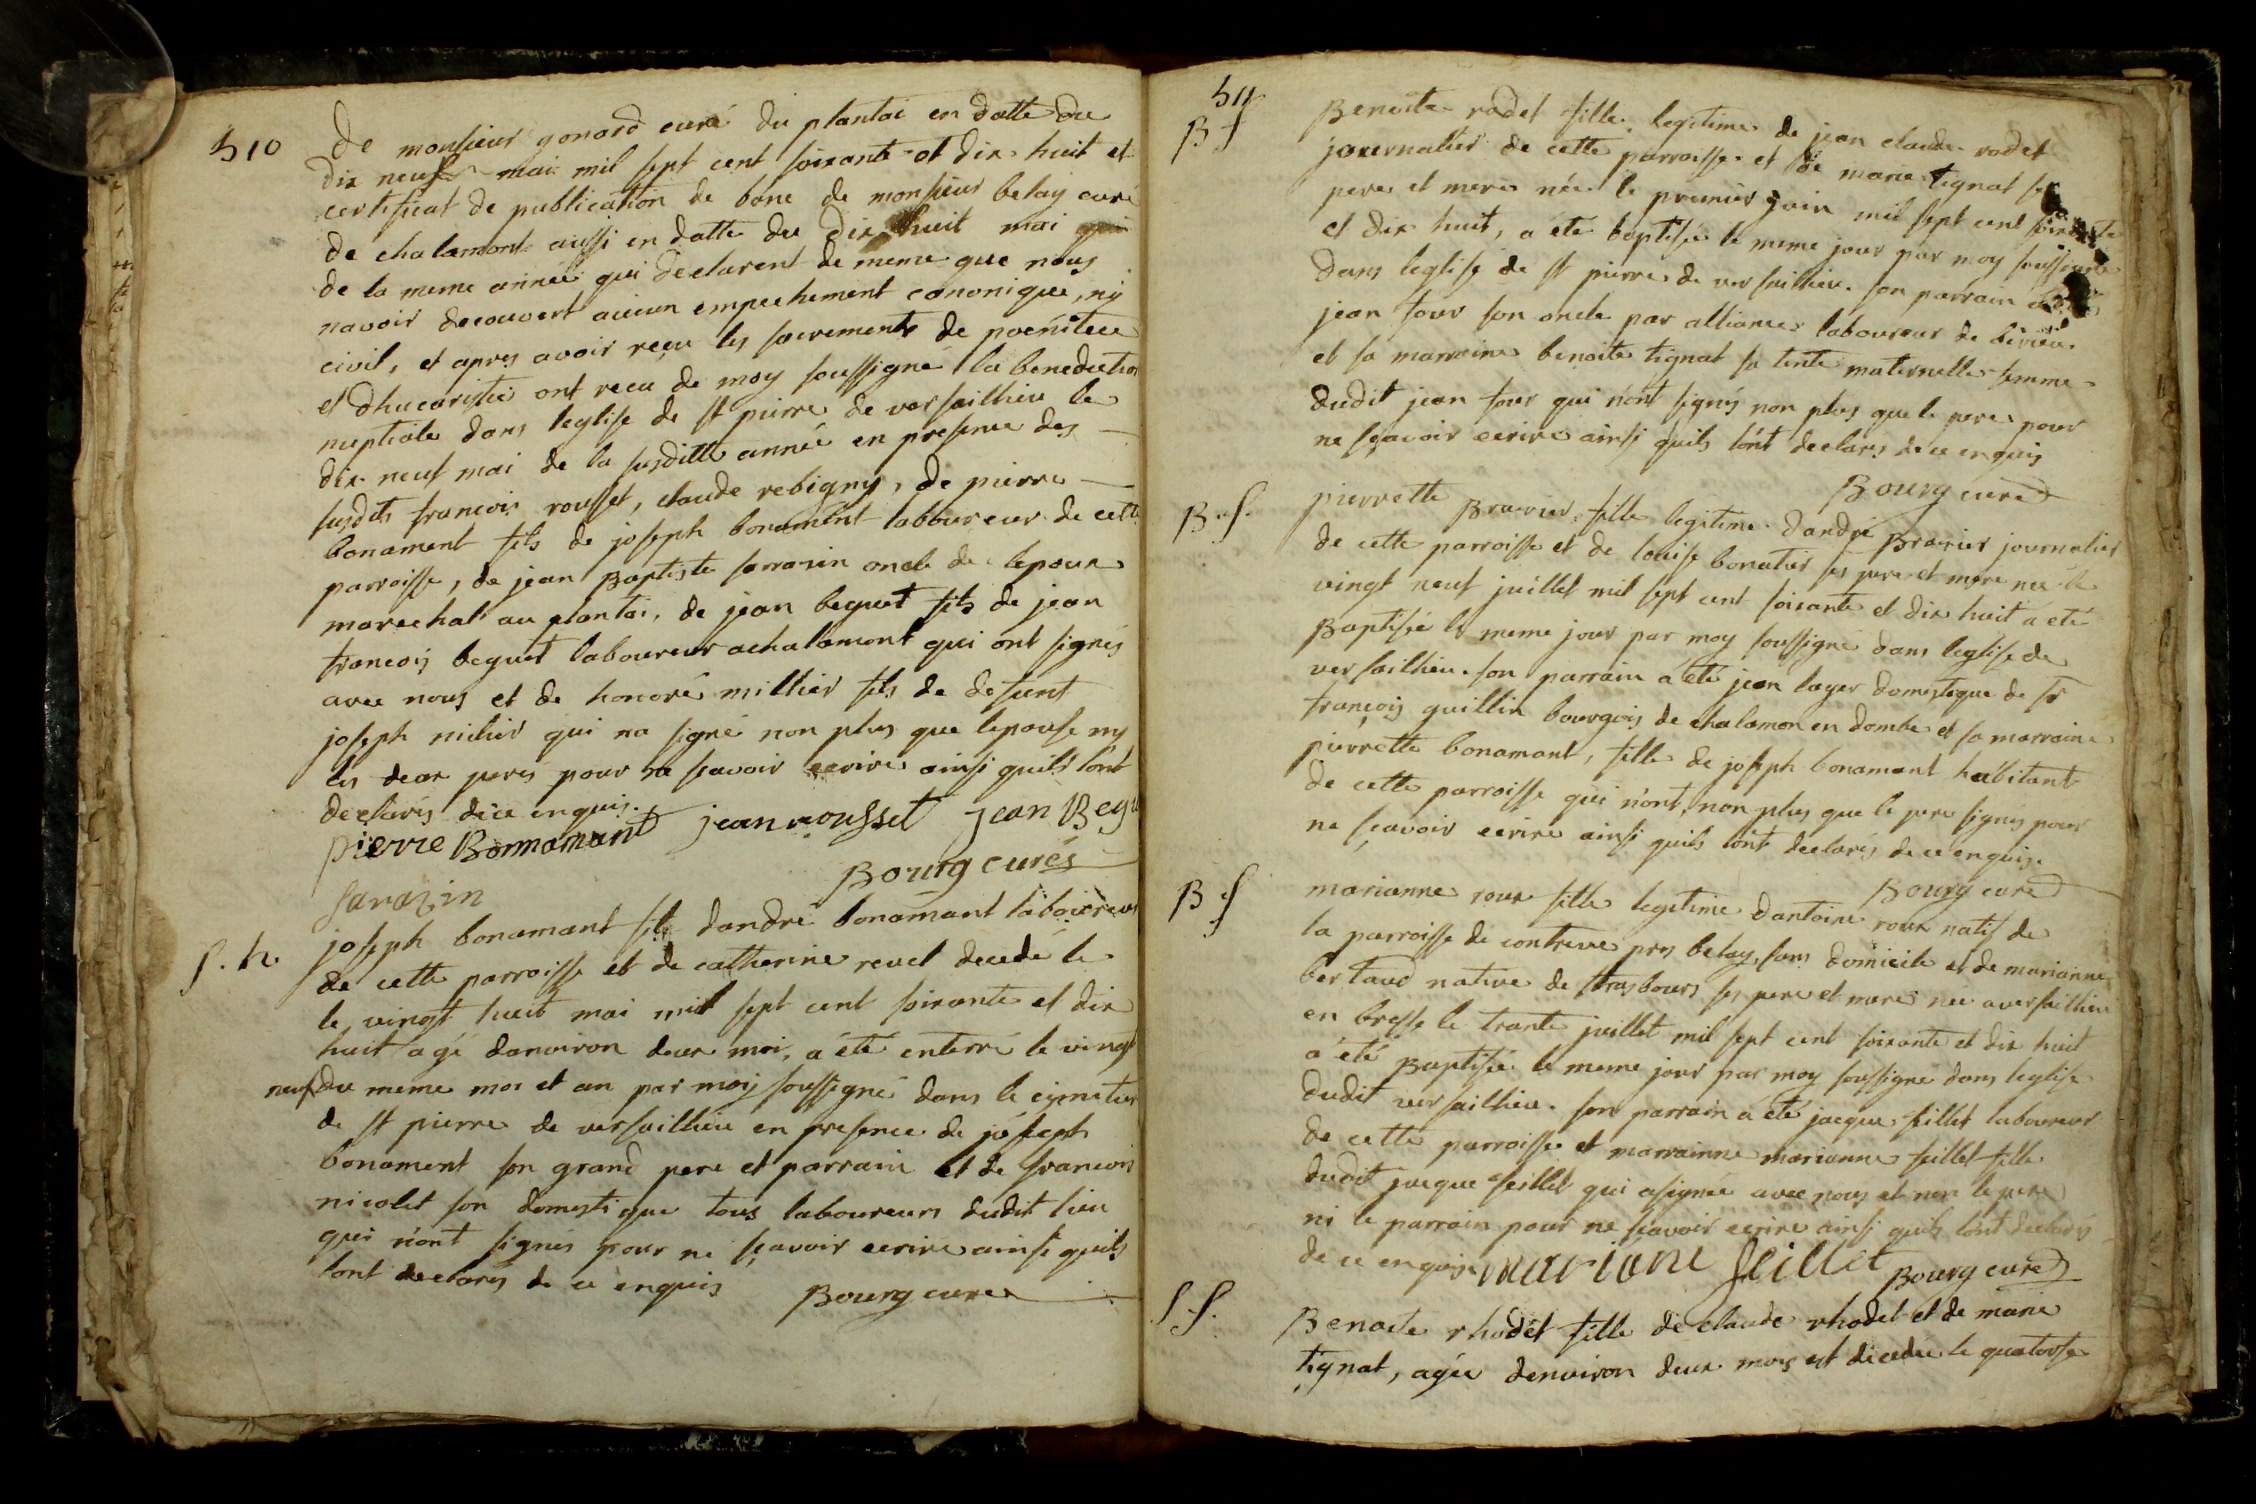 510
de monsieur gonard curé du plantai en datte du
dix neuf mai mil sept cent soixante et dix huit et
certificat de publication de banc de monsieur belay curé
de chalamont aussi en datte du dix huit mai
de la meme année qui declarent de meme que nous
navoir decouvert aucun empechement cononique, ny
civil, et apres avoir reçu les sacrements de poenitece
et dhucaristie ont recu de moy soussigné la benediction
nuptiale dans leglise de st pierre de versailleu le
dix neuf mai de la susditte année en presence des
susdits francois rousset, claude rebigny, de pierre
bonament fils de joseph bonament laboureur de cette
parroisse, de jean Baptiste sarrasin oncle de lepoux
marechal au plantai, de jean beguet fils de jean
francois beguet laboureur achalamont qui ont signés
avec nous et de honoré millier fils de defunt
joseph milier qui na signé non plus que lepouse ny
les deux peres pour ne scavoir ecrire ainsi quils lont
declarés dece enquis.
pierre Bonnamant jean rousset jean Begu
Bourg curés
Sarazin
S. h. joseph bonamant fils dandré bonamant laboureur
de cette parroisse et de catherine revel decedé le
le vingt huit mai mil sept cent soixante et dix
huit agé danviron deux moi, a été enterré le vingt
neuf du meme moi et an par moy soussigné dans le cimetier
de st pierre de versailleu en presence de joseph
bonament son grand pere et parrain et de francois
nicolet son domestique tous laboureurs dudit lieu
qui n'ont signes pour ne sçavoir ecrire ainsi quils
lont declarés de ce enquis Bourg curé
511
B f Benoite radet fille legitime de jean claude radet
journalier de cette parroisse et de marie tignat ses
pere et mere née le premier juin mil sept cent soixante
et dix huit, a été baptisée le meme jour par moy soussigné
dans leglise de st pierre de versailleu. son parrain
jean four son oncle par alliance laboureur de
et sa marraine benoite tignat sa tente maternelle femme
dudit jean four qui n'ont signés non plus que le pere pour
ne sçavoir ecrire ainsi quils lont declarés de ce enquis
Bourg curé
B. f. pierrette Bravier fille legitime dandré Bravier journalier
de cette parroisse et de louise bonatier ses pere et mere née le
vingt neuf juillet mil sept cent soixante et dix huit a été
Baptisée le meme jour par moy soussigné dans leglise de
versailleu. son parrain a été jean layer domestique de sr
françois guillin bourgois de chalamon en dombe et sa marraine
pierrette bonamant, fille de joseph bonamant habitant
de cette parroisse qui n'ont, non plus que le pere signes pour
ne sçavoir ecrire ainsi quils lont declarés de ce enquis.
Bourg curé
B f marianne roux fille legitime dantoine roux natif de
la parroisse de contreve pres belay, sans domicile et de marianne
bertaud native de strasbourg ses pere et mere née aversailleu
en bresse le trante juillet mil sept cent soixante et dix huit
a été Baptisée le meme jour par moy soussigné dans leglise
dudit versailleu. son parrain a été jacque feillet laboureur
de cette parroisse et marrainne marianne feillet fille
dudit jacque feillet qui asignée avec nous et non le pere
ni le parrain pour ne scavoir ecrire ainsi quils lont declarés
de ce enquis mariane feillet Bourg curé
S f. Benoite rhodet fille de claude rhodet et de marie
tignat, agée denviron deux mois est dicedée le quatorse